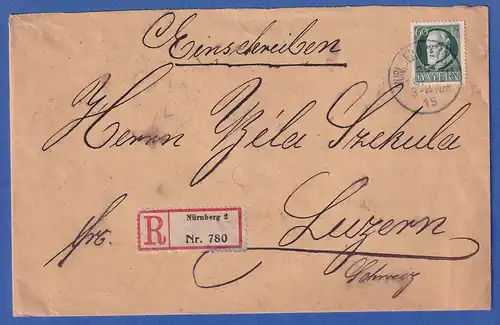 Einschreiben
60
BAYERN
3-4 Nm
15
Herrn Béla Szekula
fro.
R
Nürnberg 2
Nr. 780
Luzern
Schweiz